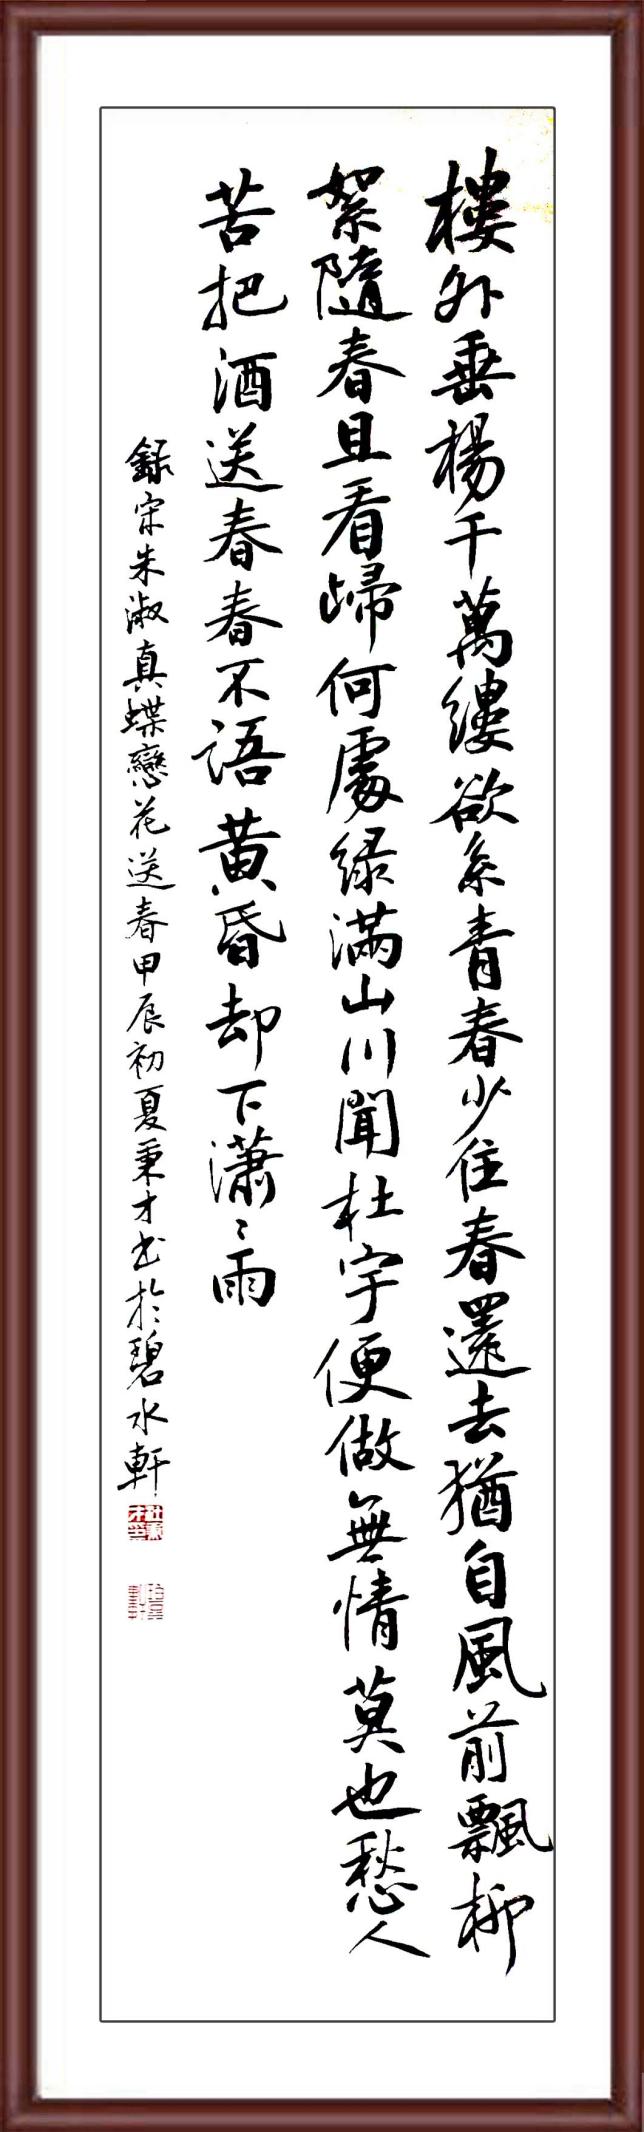 樓外垂楊千萬縷欲系青春少住春還去猶自風前飄柳
絮隨春且看歸何處緑滿山川聞杜宇便做無情莫也愁人
苦把酒送春春不語黄昏却下瀟〻雨
録宋朱淑真蝶戀花送春甲辰初夏秉才书於碧水軒